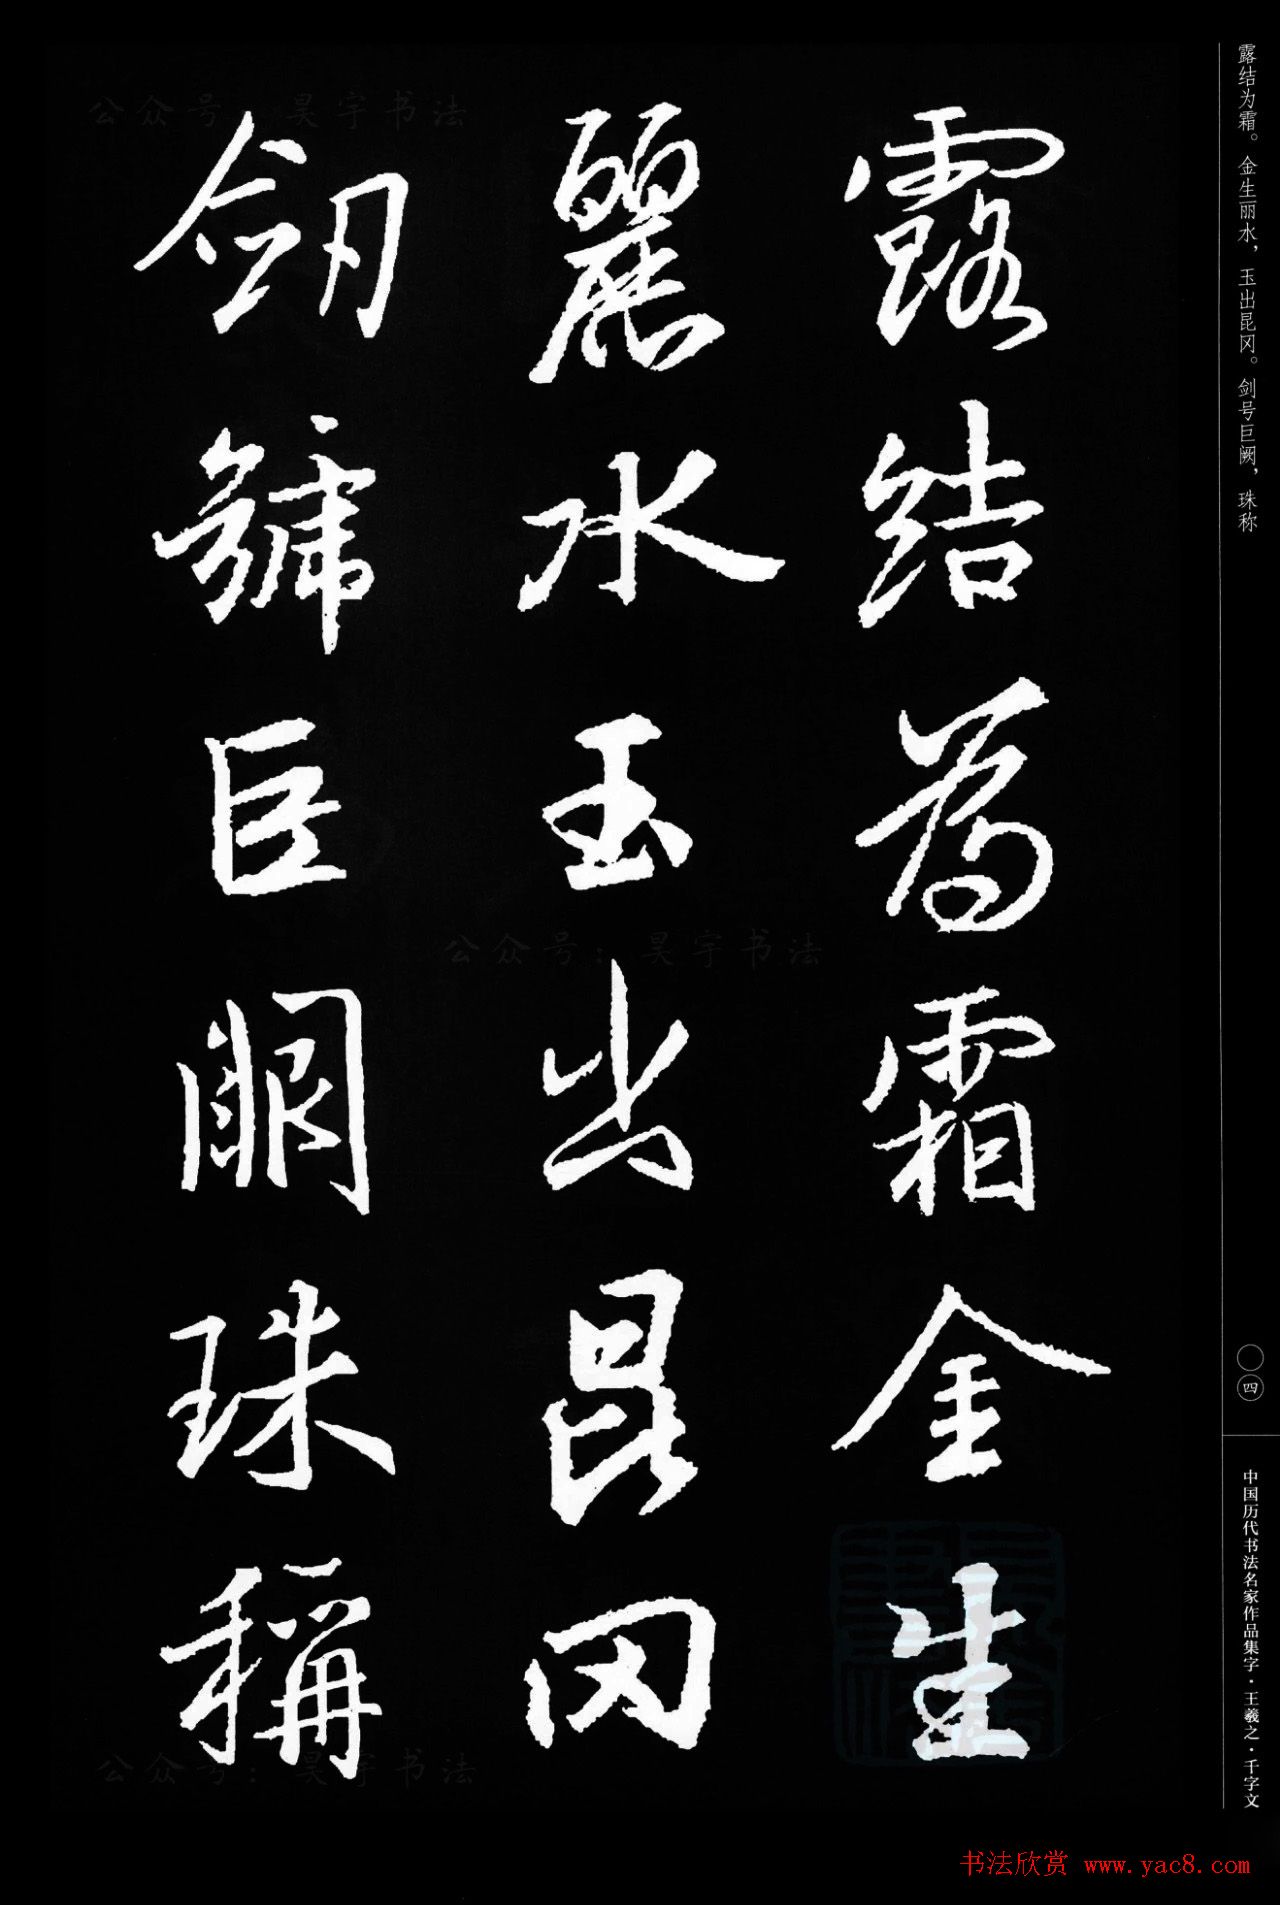 露结为霜。金生丽水，玉出昆冈。剑号巨阙，珠称
露結為霜金生
麗水玉出崑岡
劒號巨闕珠稱
〇四
中国历代书法名家作品集字·王羲之·千字文
公众号：昊宇书法
公众号：昊宇书法
公众号：昊宇书法
书法欣赏 www.yac8.com